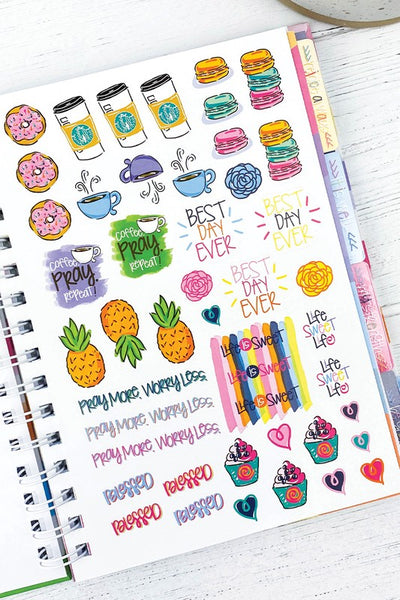 BEST
DAY
EVER
BEST
DAY
EVER
coffee,
PRAY,
REPEAT!
coffee,
PRAY,
REPEAT!
BEST
DAY
EVER
Life is Sweet
Life is Sweet
Life is Sweet
Life
SWEET
Life
Life
SWEET
Life
PRAY MORE, WORRY LESS.
PRAY MORE, WORRY LESS.
PRAY MORE, WORRY LESS.
BLESSED
BLESSED
BLESSED
BLESSED